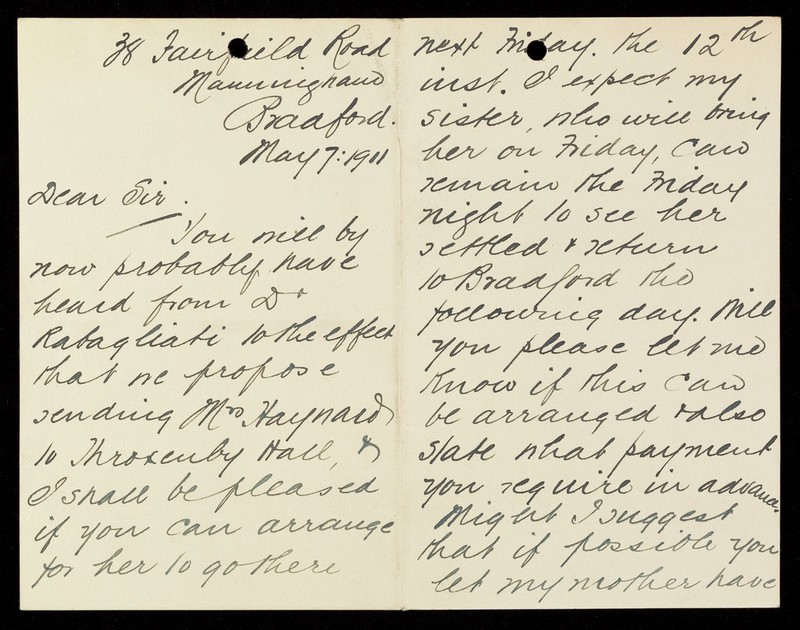 38 Fairfield Road
Manningham
Bradford.
May 7: 1911
Dear Sir.
You will by
now probably have
heard from Dr
Rabagliati to the effect
that we propose
sending Mrs Haynard
to Throxenby Hall, &
I shall be pleased
if you can arrange
for her to go there
next Friday. the 12th
inst. I expect my
sister, who will bring
her on Friday, can
remain the Friday
night to see her
settled & return
to Bradford the
following day. Will
you please let me
know if this can
be arranged & also
state what payment
you require in advance.
Might I suggest
that if possible you
let my mother have